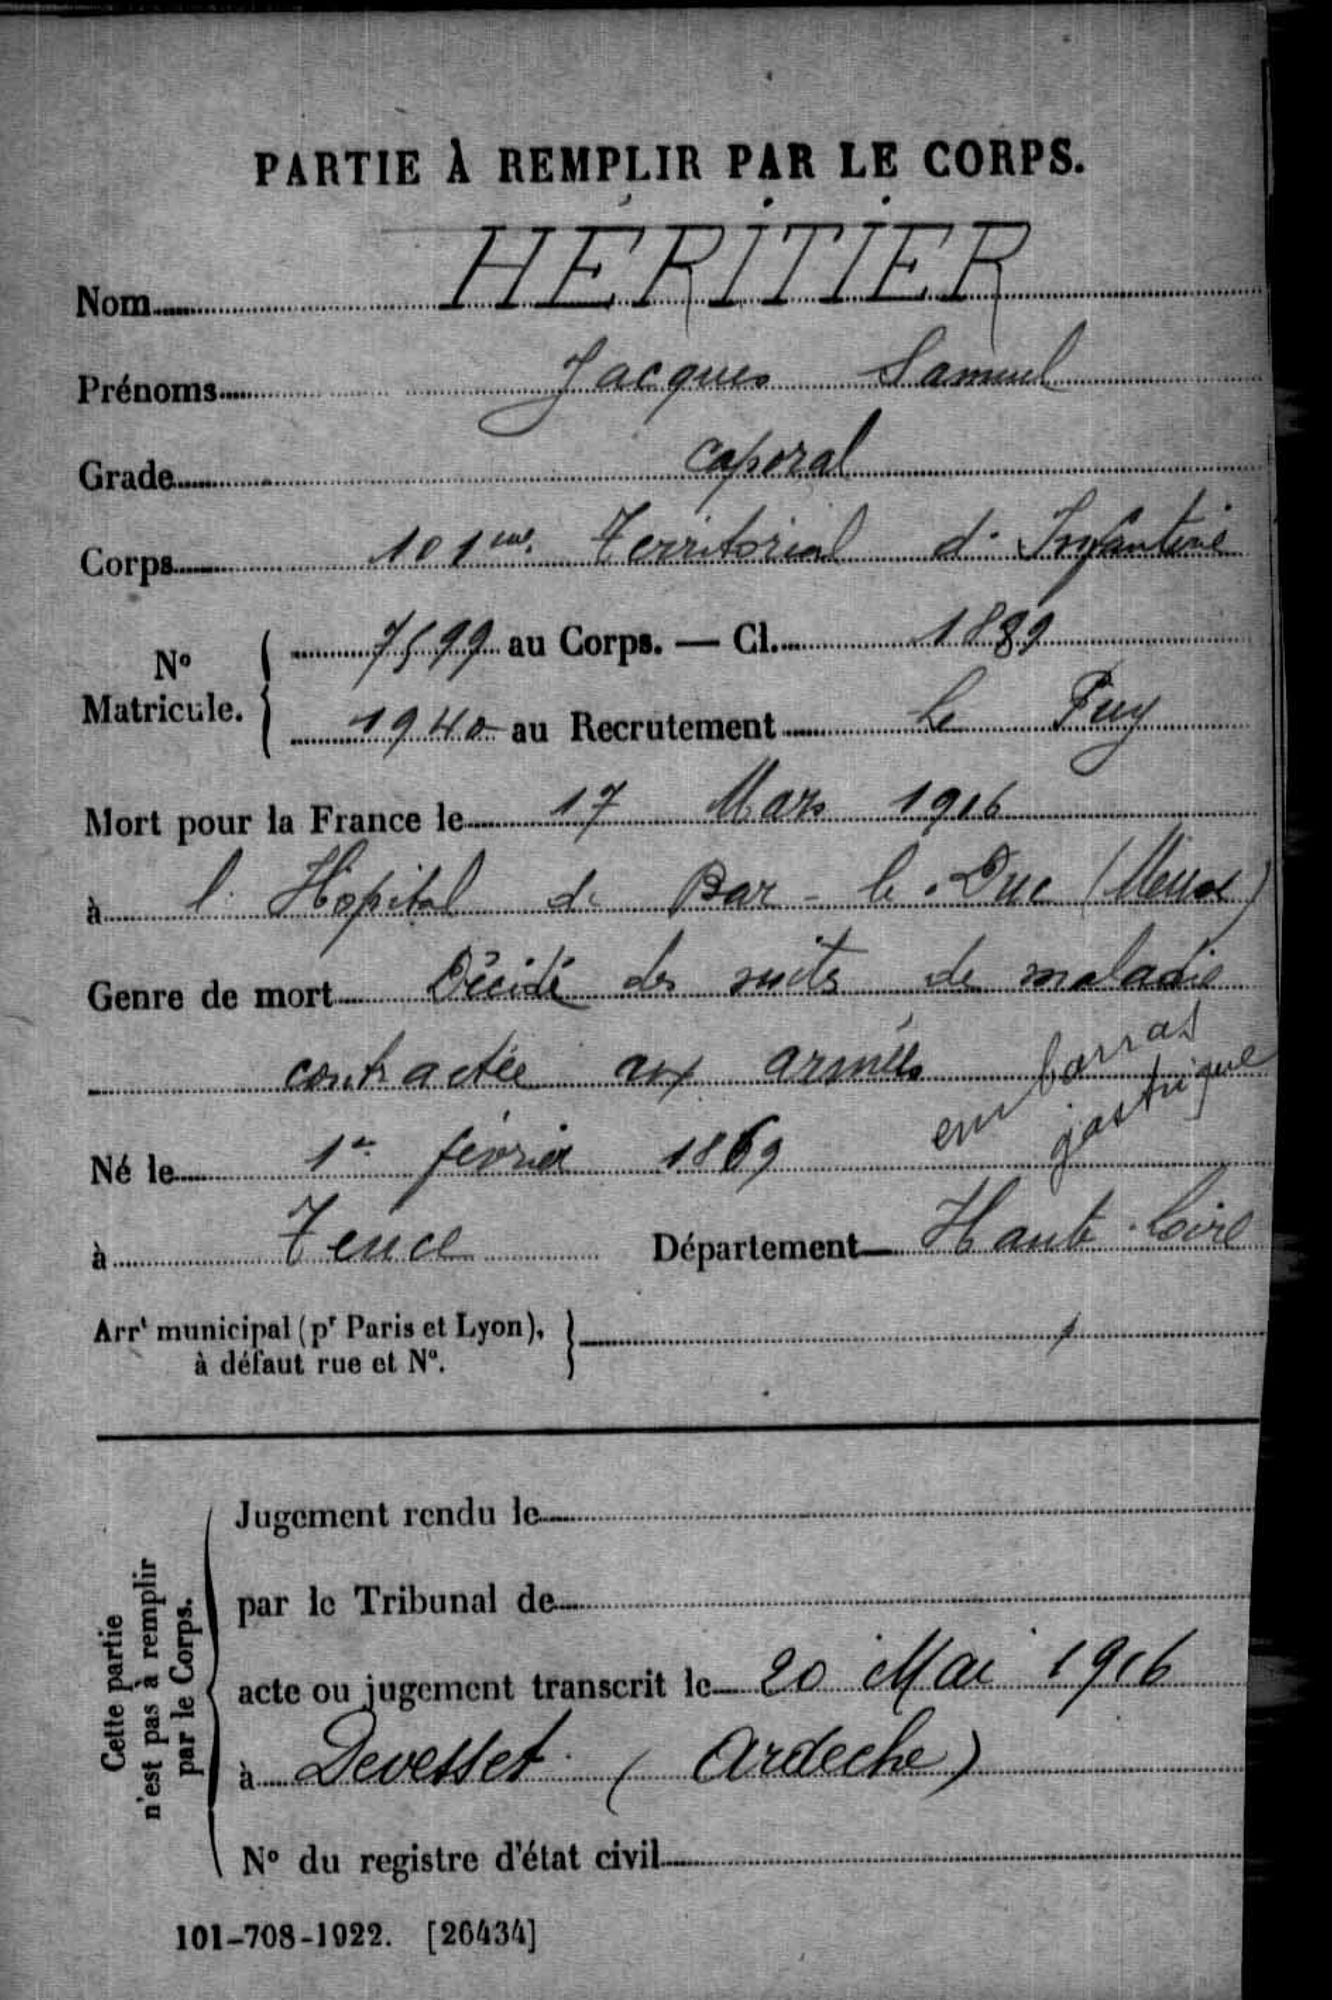 PARTIE À REMPLIR PAR LE CORPS.
Nom HÉRITIER
Prénoms Jacques Samuel
Grade caporal
Corps 101me Territorial d'Infanterie
No Matricule. { 7599 au Corps. — Cl. 1889
1940 au Recrutement Le Puy
Mort pour la France le 17 Mars 1916
à l'Hôpital de Bar-le-Duc (Meuse)
Genre de mort Décédé des suites de maladie
contractée aux armées embarras gastrique
Né le 1er février 1869
à Tence Département Haute-Loire
Arrt municipal (pr Paris et Lyon), à défaut rue et No. }
Cette partie n'est pas à remplir par le Corps.
Jugement rendu le
par le Tribunal de
acte ou jugement transcrit le 20 Mai 1916
à Devesset (Ardèche)
No du registre d'état civil
101-708-1922. [26434]